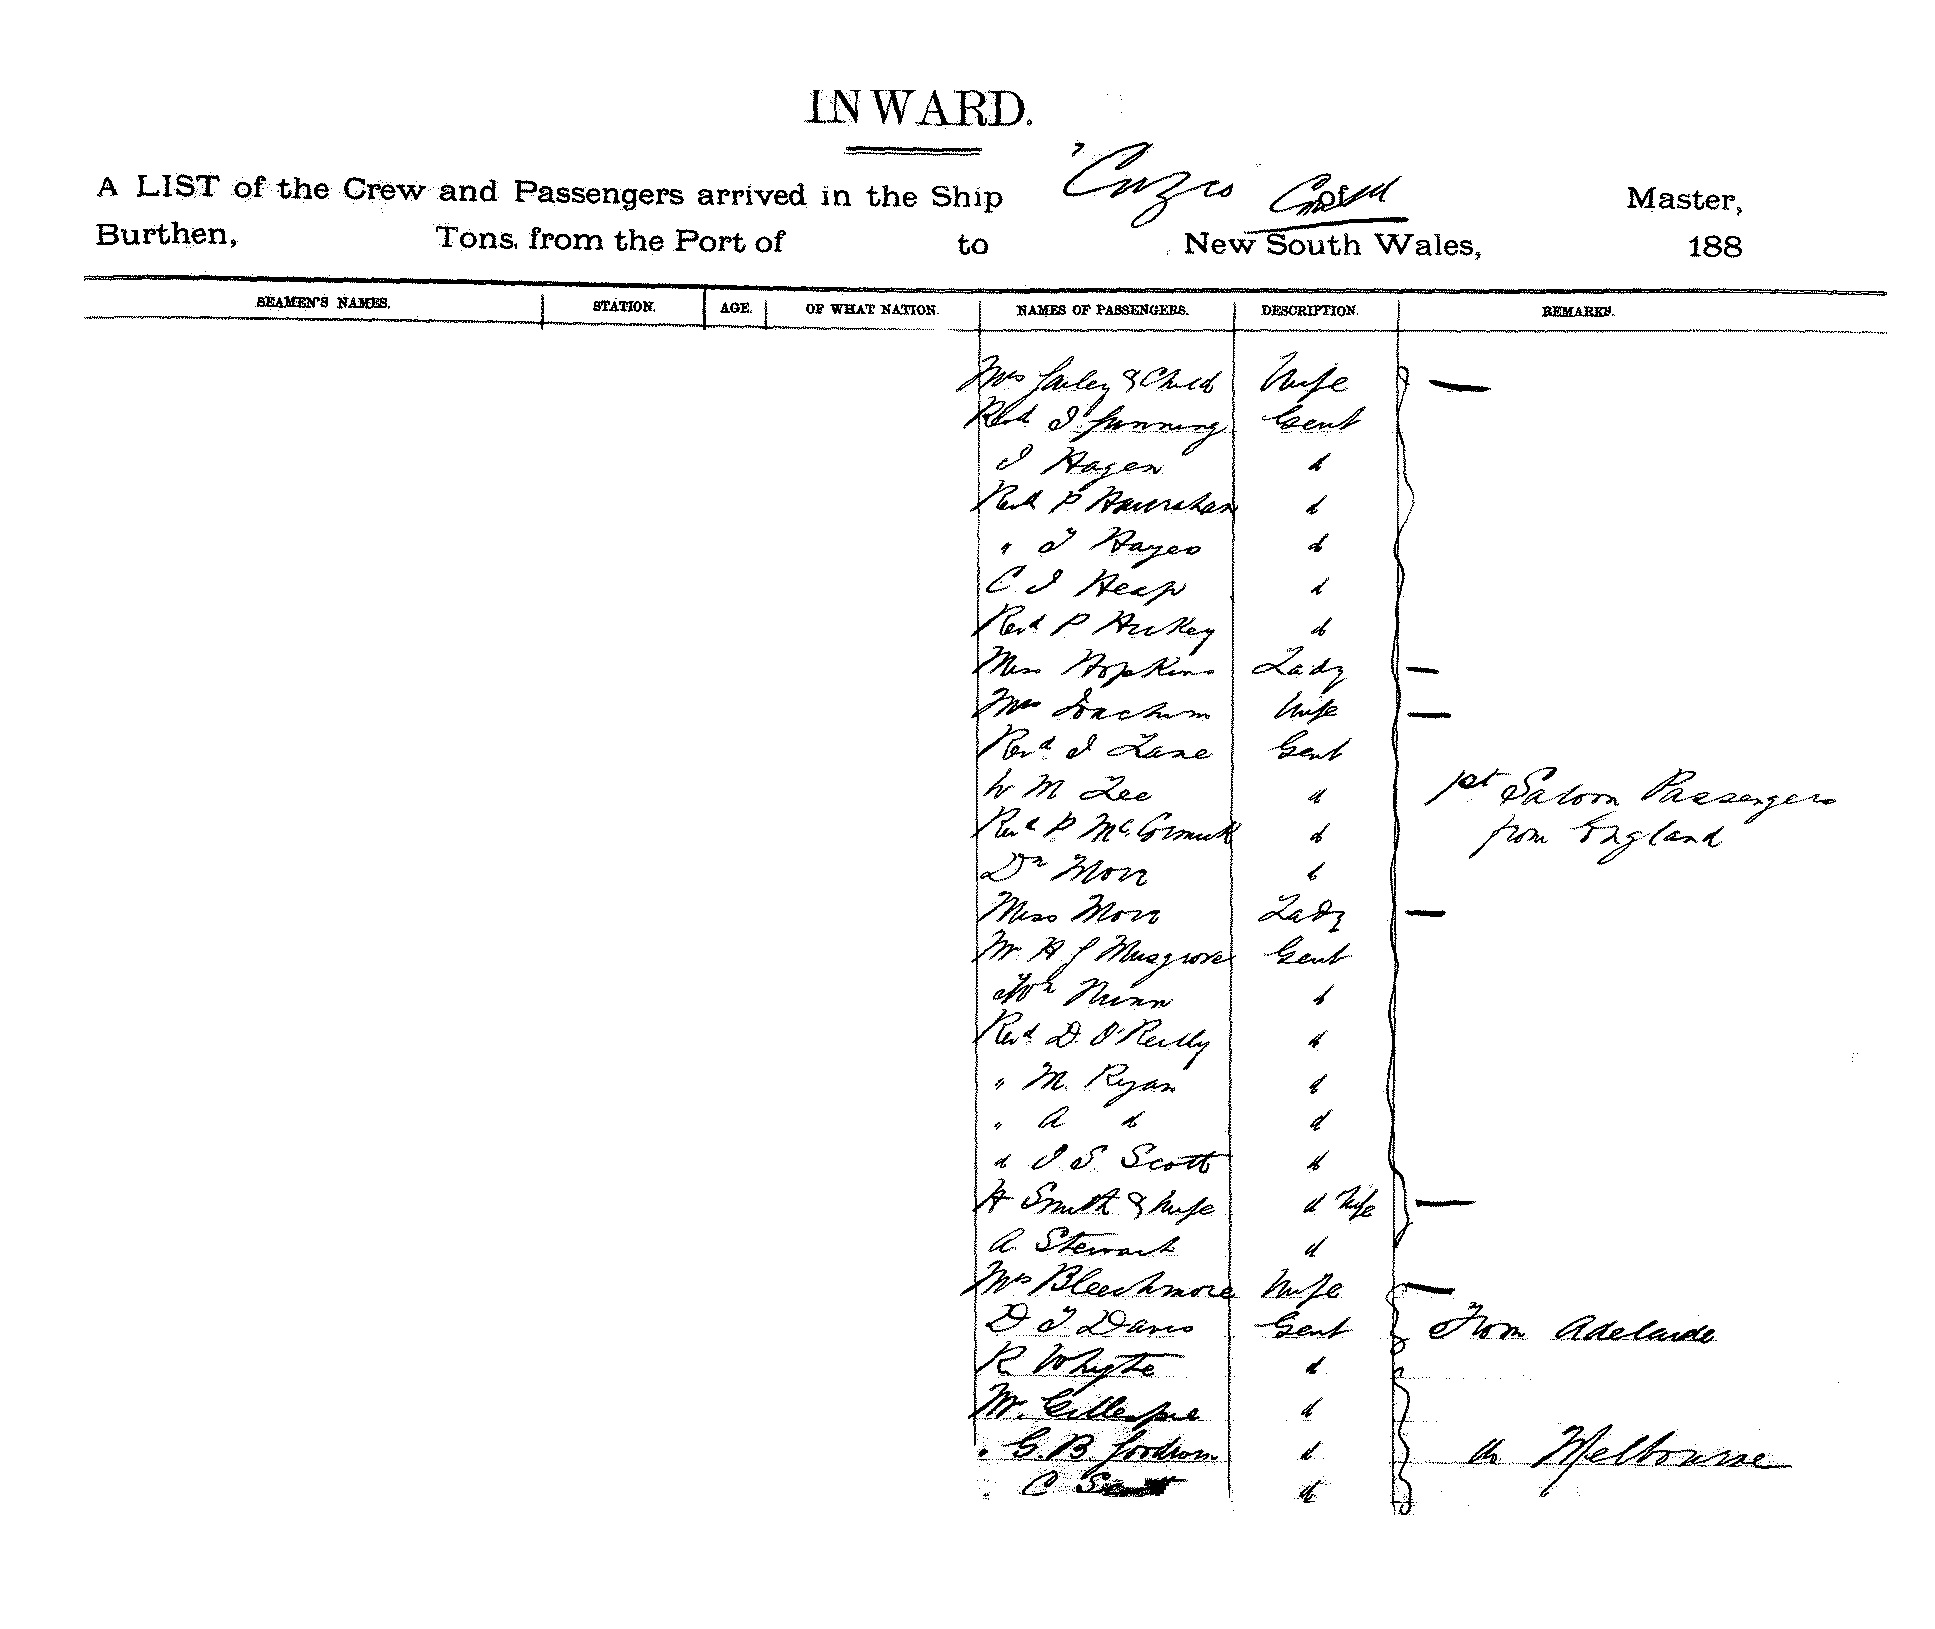 INWARD.
A LIST of the Crew and Passengers arrived in the Ship "Cuzco Contd of Master,
Burthen, Tons, from the Port of to New South Wales, 188
SEAMEN'S NAMES. STATION. AGE. OF WHAT NATION. NAMES OF PASSENGERS. DESCRIPTION. REMARKS.
Mrs Gailey & Child Wife —
Revd J Gunning Gent
J Hagen d
Revd P Hanrahan d
" T Hayes d
C J Heap d
Revd P Hickey d
Miss Hopkins Lady —
Mrs Joachim Wife —
Revd J Lane Gent
W M Lee d 1st Saloon Passengers
Revd P McCormick d from England
Dr Morr d
Miss Morr Lady —
Mr H G Musgrove Gent
Wm Nunn d
Revd D. O'Reilly d
" M. Ryan d
" A d d
d J S Scott d
H Smith & Wife d Wife —
A Stewart d
Mrs Bleechmore Wife —
D T Davis Gent From Adelaide
R Whyte d
Mr. Gillespie d
" G. B. Goodson d do Melbourne
" C Scott d